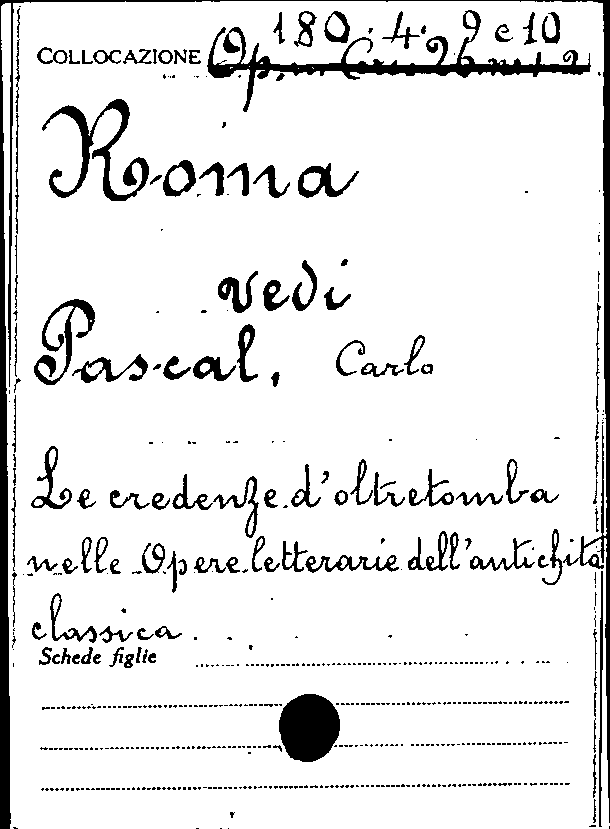 180. 4. 9 e 10
COLLOCAZIONE Op. in Cors. 26 n. 1-2
Roma
vedi
Pascal, Carlo
Le credenze d'oltretomba
nelle Opere letterarie dell'antichità
classica.
Schede figlie